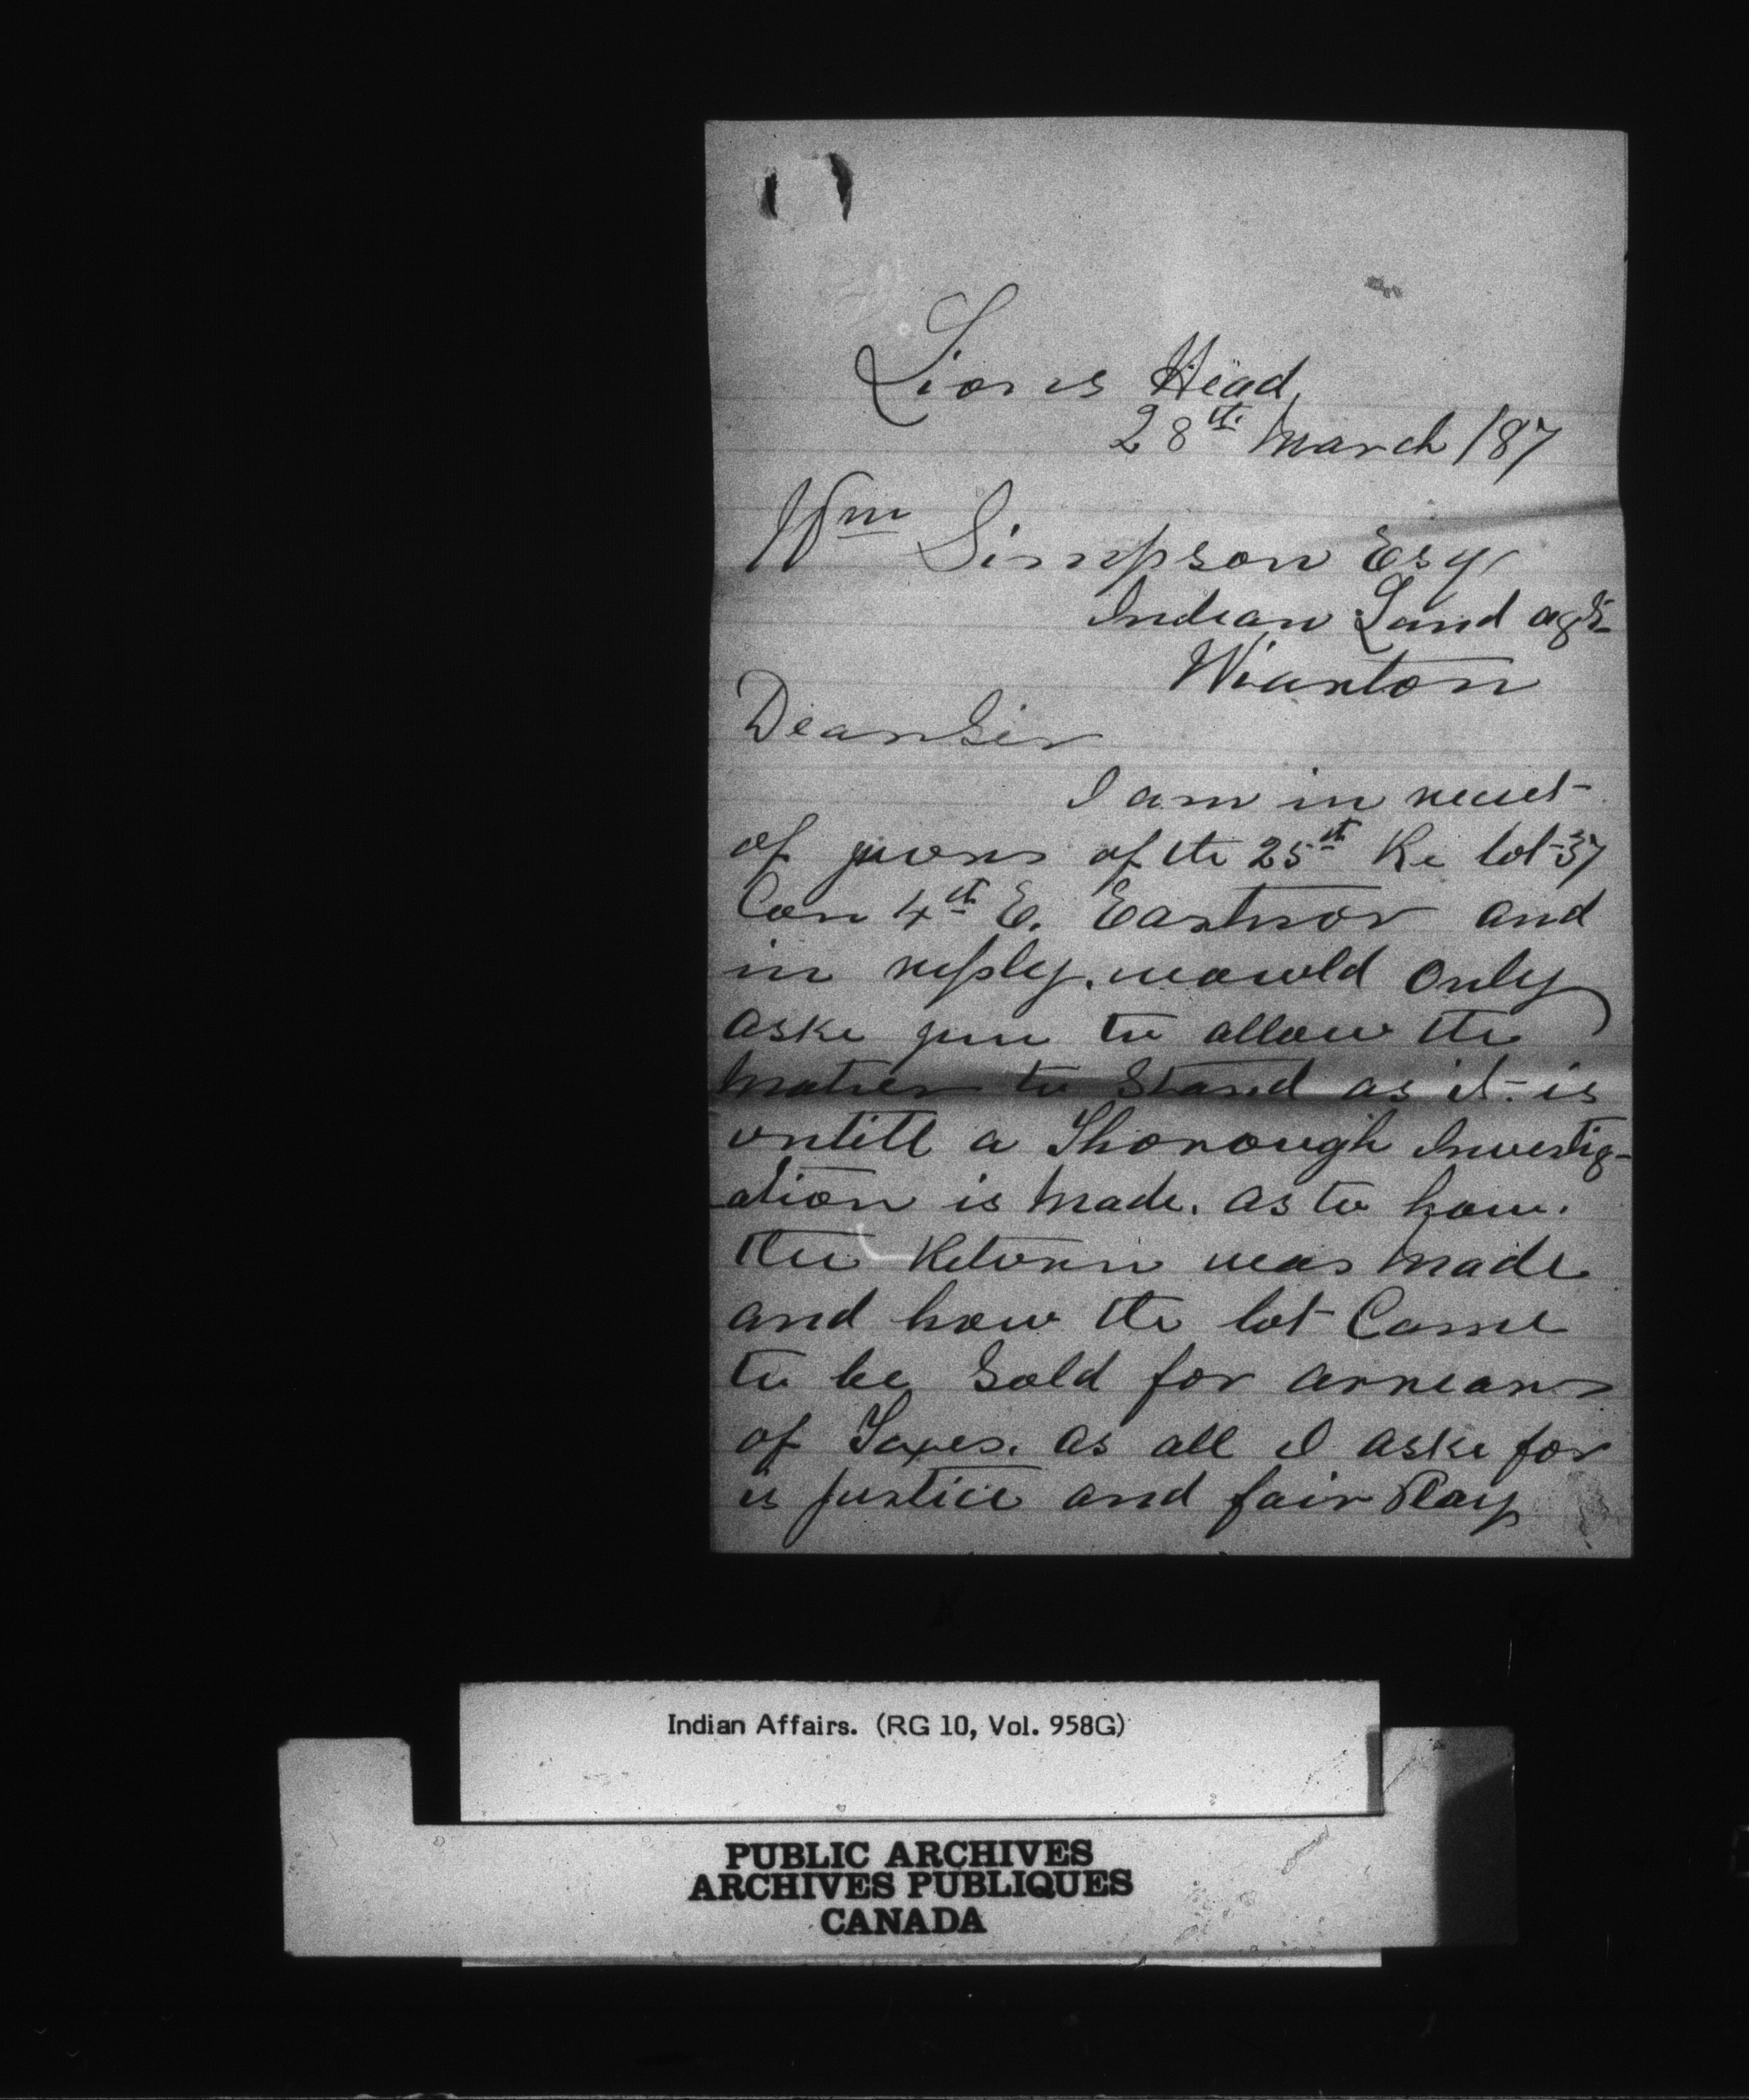 Lions Head,
28th March /87
Wm Simpson Esq
Indian Land agt
Wiarton
Dear Sir
I am in receet
of yours of the 25th Re lot 37
Con 4th E. Eastnor and
in reply. would only
aske you to allow the
matter to Stand as it is
untill a Thorough Investig-
ation is made. as to how.
the Return was made
and how the lot Came
to be Sold for arrears
of Taxes. as all I aske for
is Justice and fair Play
Indian Affairs. (RG 10, Vol. 958G)
PUBLIC ARCHIVES
ARCHIVES PUBLIQUES
CANADA